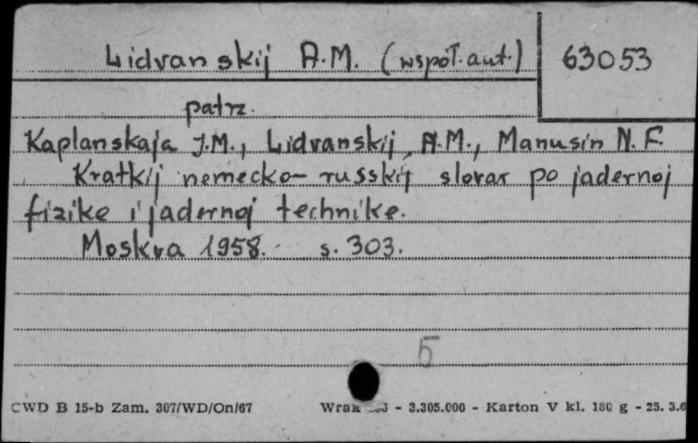 Lidvanskij A.M. (współ.aut.) 63053
patrz.
Kaplanskaja J.M., Lidvanskij A.M., Manusin N.F.
Kratkij nemecko-russkij slovar po jadernoj
fizike i jadernoj technike.
Moskva 1958. s. 303.
5
CWD B 15-b Zam. 307/WD/On/67 - 3.305.000 - Karton V kl. 180 g - 25. 3.6